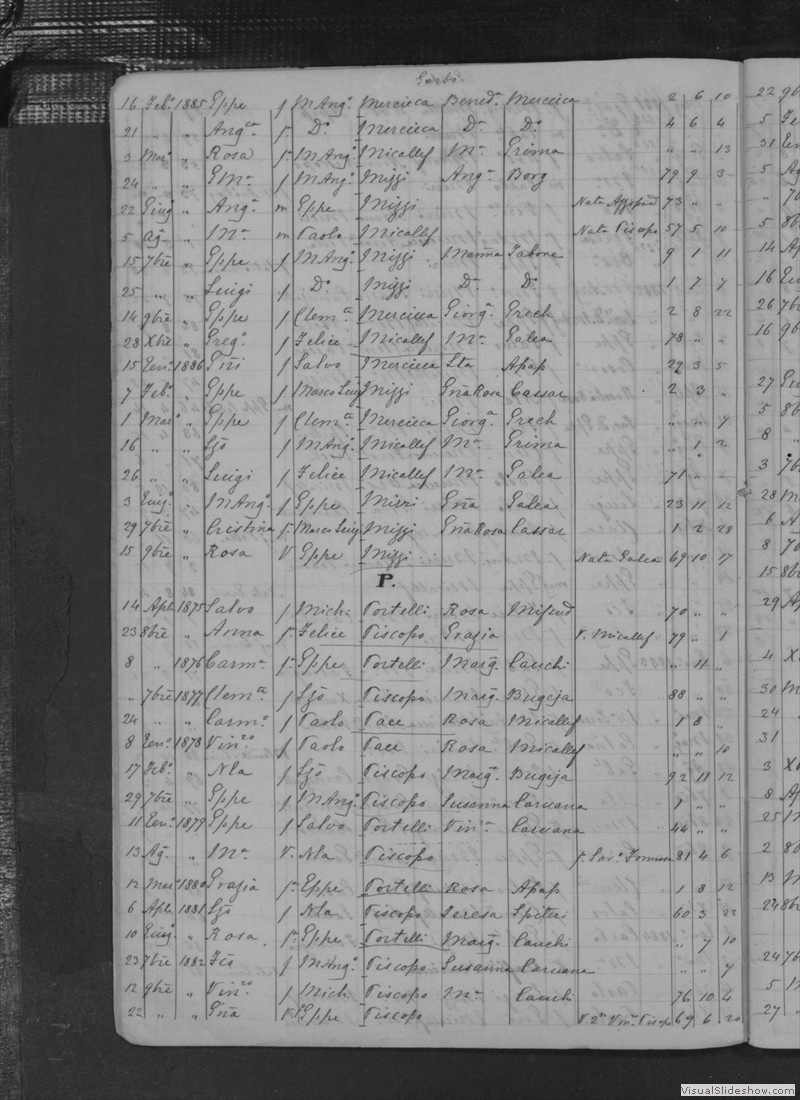 Għarb.
16 Feb. 1885 Gppe f MAng. Mercieca Bened. Mercieca 2 6 10
21 " " Ang.ca f D. Mercieca D. D. 4 6 4
3 Mar. " Rosa f MAng. Micallef M. Grima " " 13
24 " " GM. f MAng. Mizzi Ang. Borg 79 9 3
22 Giug. " Ang. m Gppe Mizzi Nata Azzopard 73 " "
5 Ag. " M. m Paolo Micallef Nata Piscopo 57 5 10
15 7bre " Gppe f MAng. Mizzi Marna Tabone 9 1 11
25 " " Luigi f D. Mizzi D. D. 1 7 7
14 9bre " Gppe f Clem.te Mercieca Giorg.a Grech 2 8 22
28 Xbre " Greg. f Felice Micallef M. Galea 78 " "
15 Gen. 1886 f Salvo Mercieca Sta Apap 27 3 5
7 Feb. " Gppe f Marco Luigi Mizzi Gña Rosa Cassar 2 3 "
1 Mar. " Gppe f Clem.te Mercieca Giorg.a Grech " " 7
16 " " f MAng. Micallef M. Grima " 1 2
26 " " Luigi f Felice Micallef M. Galea 71 " "
3 Giug. " MAng. f Gppe Gña Galea 23 11 12
29 7bre " Cristina f Marco Luigi Mizzi Gña Rosa Cassar 1 2 28
15 9bre " Rosa V Gppe Mizzi Nata Galea 69 10 17
P.
14 Aple 1875 Salvo f Mich. Portelli Rosa Mifsud 70 " "
23 8bre " Anna f Felice Piscopo Grazia V. Micallef 79 " 1
8 " 1876 Carm. f Gppe Portelli Marg. Cauchi " 11 "
" 7bre 1877 Clem.te f Piscopo Marg. Bugeja 88 " "
24 " " Carm. f Paolo Pace Rosa Micallef 1 8 "
8 Gen. 1878 Vin.zo f Paolo Pace Rosa Micallef " " 10
17 Feb. " Nla f Piscopo Marg. Bugeja 92 11 12
29 7bre " Gppe f MAng. Piscopo Susanna Caruana 1 " "
11 Gen. 1879 Gppe f Salvo Portelli Vin.a Caruana 44 " "
13 Ag. " M. V. Nla Piscopo 81 4 6
12 Mar. 1880 Grazia f Gppe Portelli Rosa Apap 1 8 12
6 Aple 1881 f Nla Piscopo Teresa Spiteri 60 3 22
10 Giug. " Rosa f Gppe Portelli Marg. Cauchi " 7 10
23 7bre 1882 f MAng. Piscopo Susanna Caruana " " 7
12 9bre " Vin.zo f Mich. Piscopo M. Cauchi 76 10 4
22 " " Gña V Gppe Piscopo 69 6 20
VisualSlideshow.com